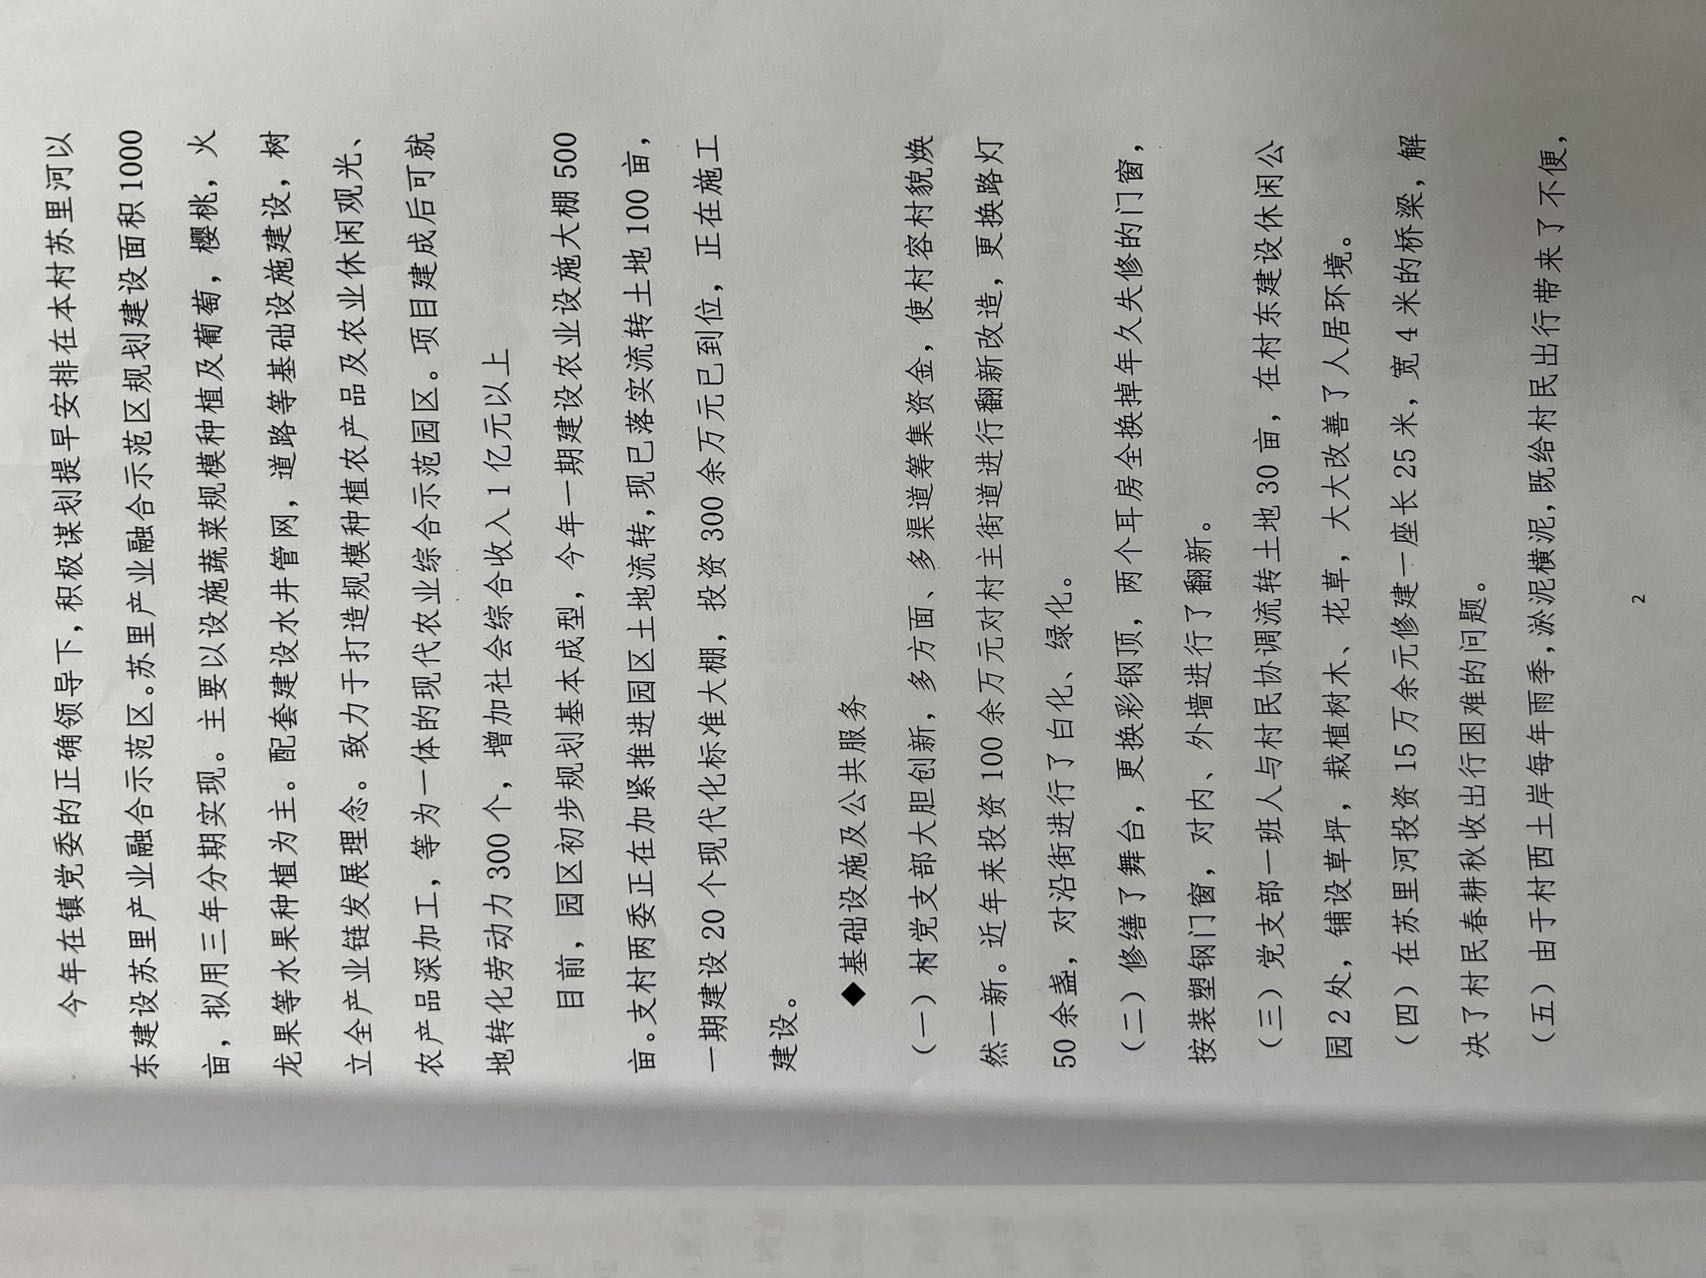 今年在镇党委的正确领导下，积极谋划提早安排在本村苏里河以
东建设苏里产业融合示范区。苏里产业融合示范区规划建设面积1000
亩，拟用三年分期实现。主要以设施蔬菜规模种植及葡萄，樱桃，火
龙果等水果种植为主。配套建设水井管网，道路等基础设施建设，树
立全产业链发展理念。致力于打造规模种植农产品及农业休闲观光、
农产品深加工，等为一体的现代农业综合示范园区。项目建成后可就
地转化劳动力300个，增加社会综合收入1亿元以上
目前，园区初步规划基本成型，今年一期建设农业设施大棚500
亩。支村两委正在加紧推进园区土地流转，现已落实流转土地100亩，
一期建设20个现代化标准大棚，投资300余万元已到位，正在施工
建设。
◆基础设施及公共服务
（一）村党支部大胆创新，多方面、多渠道筹集资金，使村容村貌焕
然一新。近年来投资100余万元对村主街道进行翻新改造，更换路灯
50余盏，对沿街进行了白化、绿化。
（二）修缮了舞台，更换彩钢顶，两个耳房全换掉年久失修的门窗，
按装塑钢门窗，对内、外墙进行了翻新。
（三）党支部一班人与村民协调流转土地30亩，在村东建设休闲公
园2处，铺设草坪，栽植树木、花草，大大改善了人居环境。
（四）在苏里河投资15万余元修建一座长25米，宽4米的桥梁，解
决了村民春耕秋收出行困难的问题。
（五）由于村西土岸每年雨季，淤泥横泥，既给村民出行带来了不便，
2